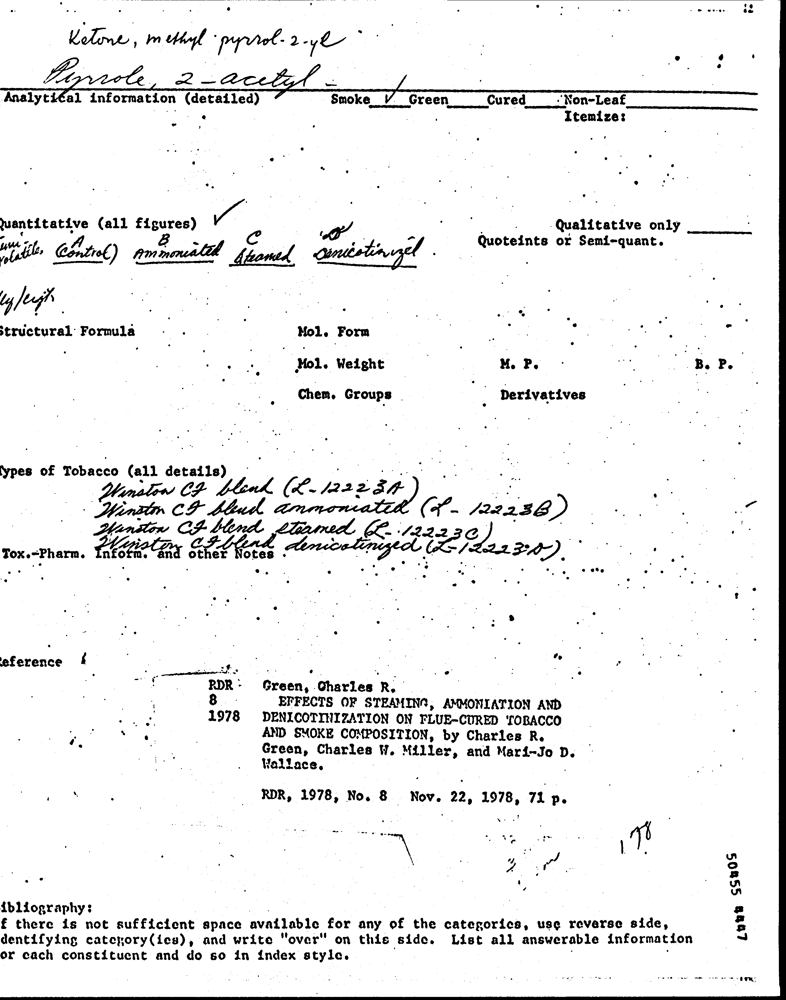 Ketone, methyl pyrrol-2-yl
Pyrrole, 2-acetyl-
Analytical information (detailed) Smoke ✓ Green Cured Non-Leaf
Itemize:
Quantitative (all figures) ✓ Qualitative only
Quoteints or Semi-quant.
A B C D
(Control) Ammoniated Steamed Denicotinized
Structural Formula Mol. Form
Mol. Weight M. P. B. P.
Chem. Groups Derivatives
Types of Tobacco (all details)
Winston CF blend (L-12223A)
Winston CF blend ammoniated (L-12223B)
Winston CF blend steamed (L-12223C)
Winston CF blend denicotinized (L-12223D)
Tox.-Pharm. Inform. and other Notes
Reference
RDR Green, Charles R.
8 EFFECTS OF STEAMING, AMMONIATION AND
1978 DENICOTINIZATION ON FLUE-CURED TOBACCO
AND SMOKE COMPOSITION, by Charles R.
Green, Charles W. Miller, and Mari-Jo D.
Wallace.
RDR, 1978, No. 8 Nov. 22, 1978, 71 p.
ibliography:
f there is not sufficient space available for any of the categories, use reverse side,
dentifying category(ies), and write "over" on this side. List all answerable information
or each constituent and do so in index style.